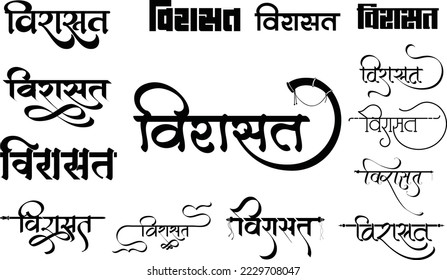 विरासत विरासत विरासत विरासत
विरासत
विरासत विरासत
विरासत
विरासत
विरासत
विरासत
विरासत विरासत विरासत विरासत
shutterstock.com · 2229708047